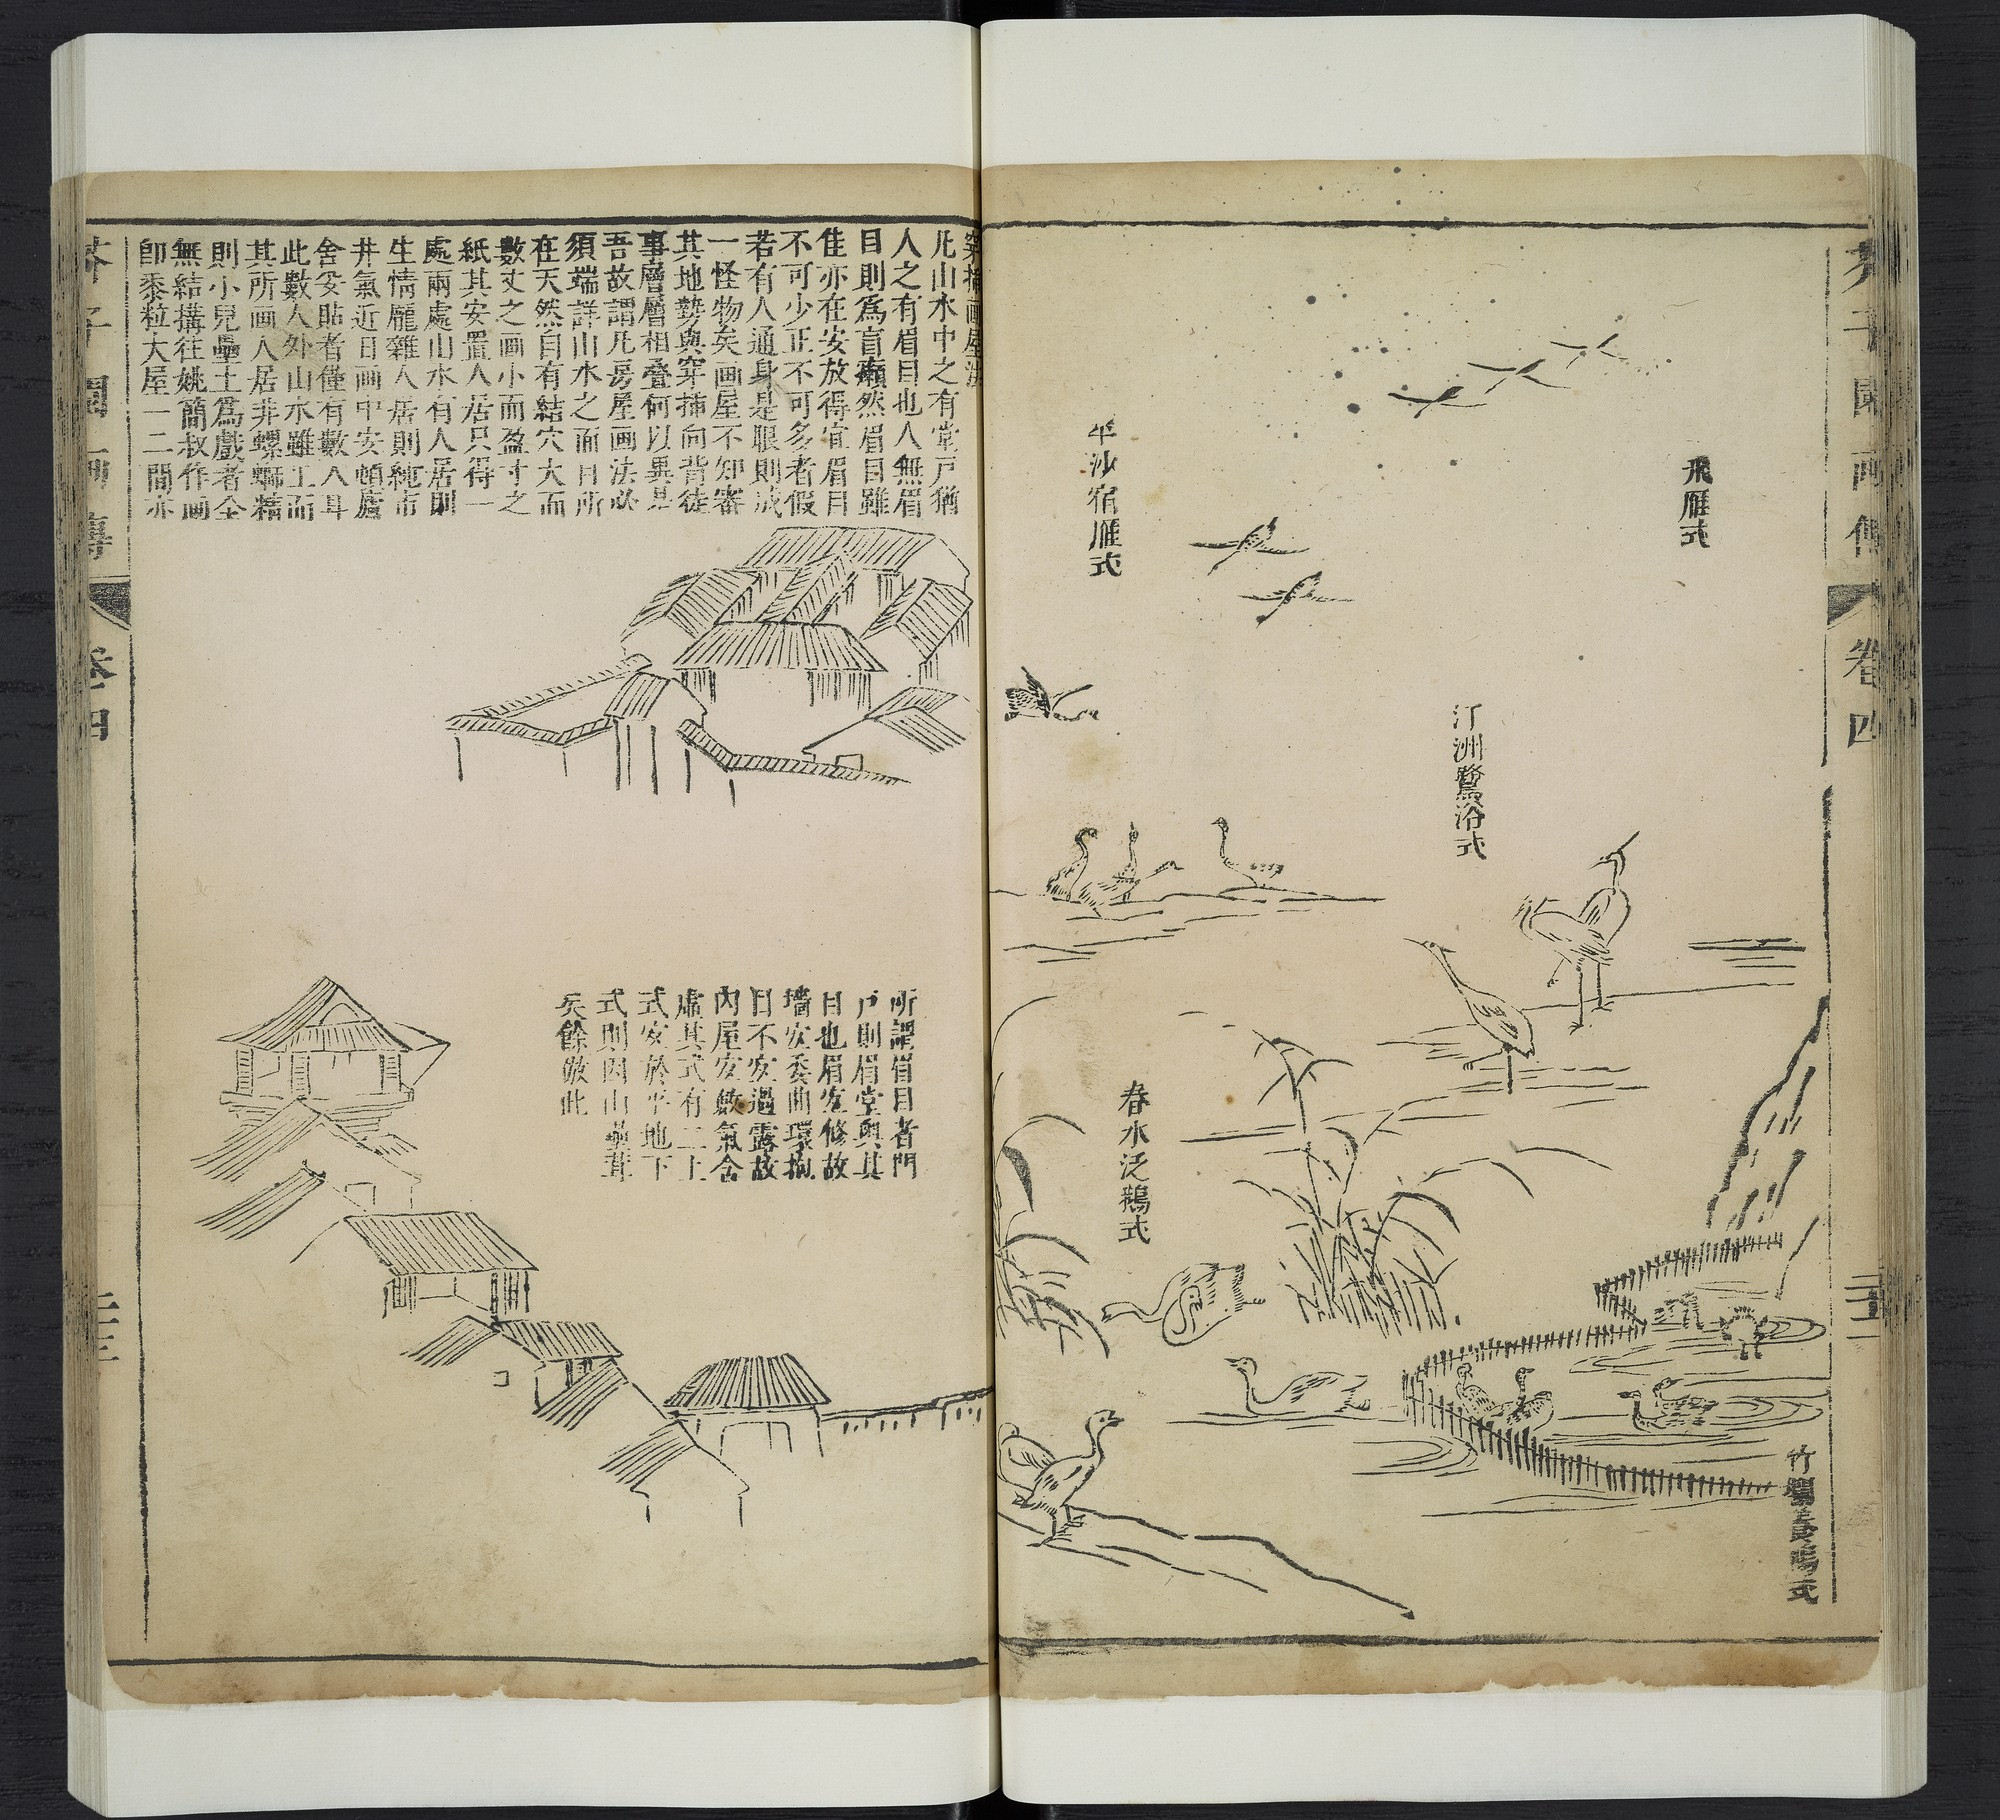 芥子園画傳
卷四
飛雁式
汀洲鷺浴式
平沙宿雁式
春水泛鵝式
竹闌養鴨式
穿插画屋法
凡山水中之有堂戸猶
人之有眉目也人無眉
目則爲盲癩然眉目雖
佳亦在安放得宜眉目
不可少正不可多者假
若有人通身是眼則成
一怪物矣画屋不知審
其地勢與穿插向背徒
事層層相叠何以異是
吾故謂凡房屋画法必
須端詳山水之面目所
在天然自有結穴大而
數丈之画小而盈寸之
紙其安置人居只得一
處兩處山水有人居則
生情龐雜人居則純市
井氣近日画中安頓廬
舍妥貼者僅有數人耳
此數人外山水雖工而
其所画人居非螺螄精
則小兒壘土爲戲者全
無結搆往姚簡叔作画
卽黍粒大屋一二間亦
所謂眉目者門
戸則眉堂奥其
目也眉宐修故
墻宐委曲環抱
目不宐過露故
內屋宐斂氣含
虛其式有二上
式宐於平地下
式則因山壘葺
矣餘倣此
芥子園画傳
卷四